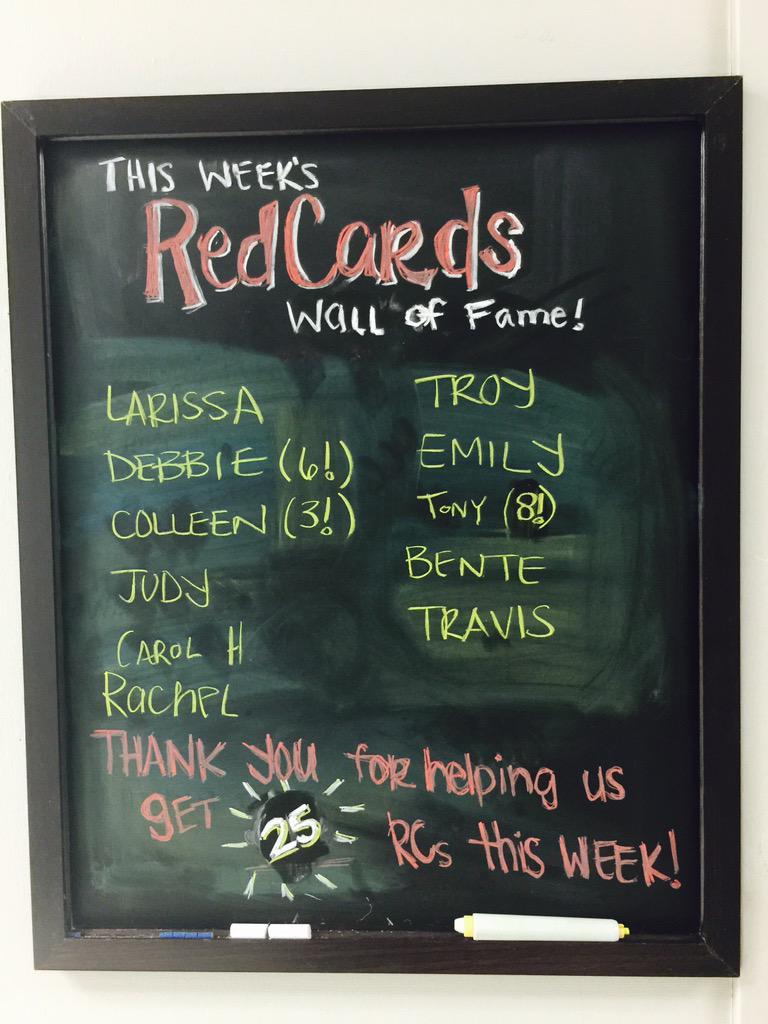 THIS WEEK'S
RedCards
Wall of Fame!
LARISSA
DEBBIE (6!)
COLLEEN (3!)
JUDY
CAROL H
Rachel
TROY
EMILY
TONY (8!)
BENTE
TRAVIS
THANK YOU for helping us
gET 25 RCs this WEEK!